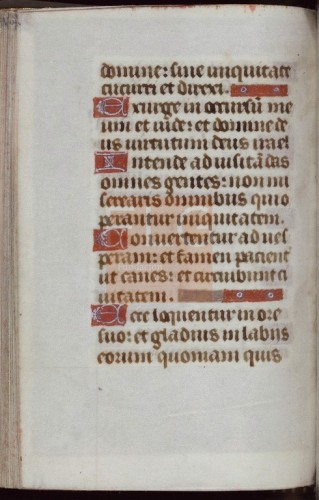 domine: sine iniquitate
cucurri et direxi.
Exurge in occursū me
um et vide: et domine de
us virtutum deus israel
Intende ad visitādas
omnes gentes: non mi
serearis omnibus qui o
perantur iniquitatem.
Convertentur ad ves
peram: et famen pacient
ut canes: et circuibunt ci
vitatem.
Ecce loquentur in ore
suo: et gladius in labiis
eorum quoniam quis